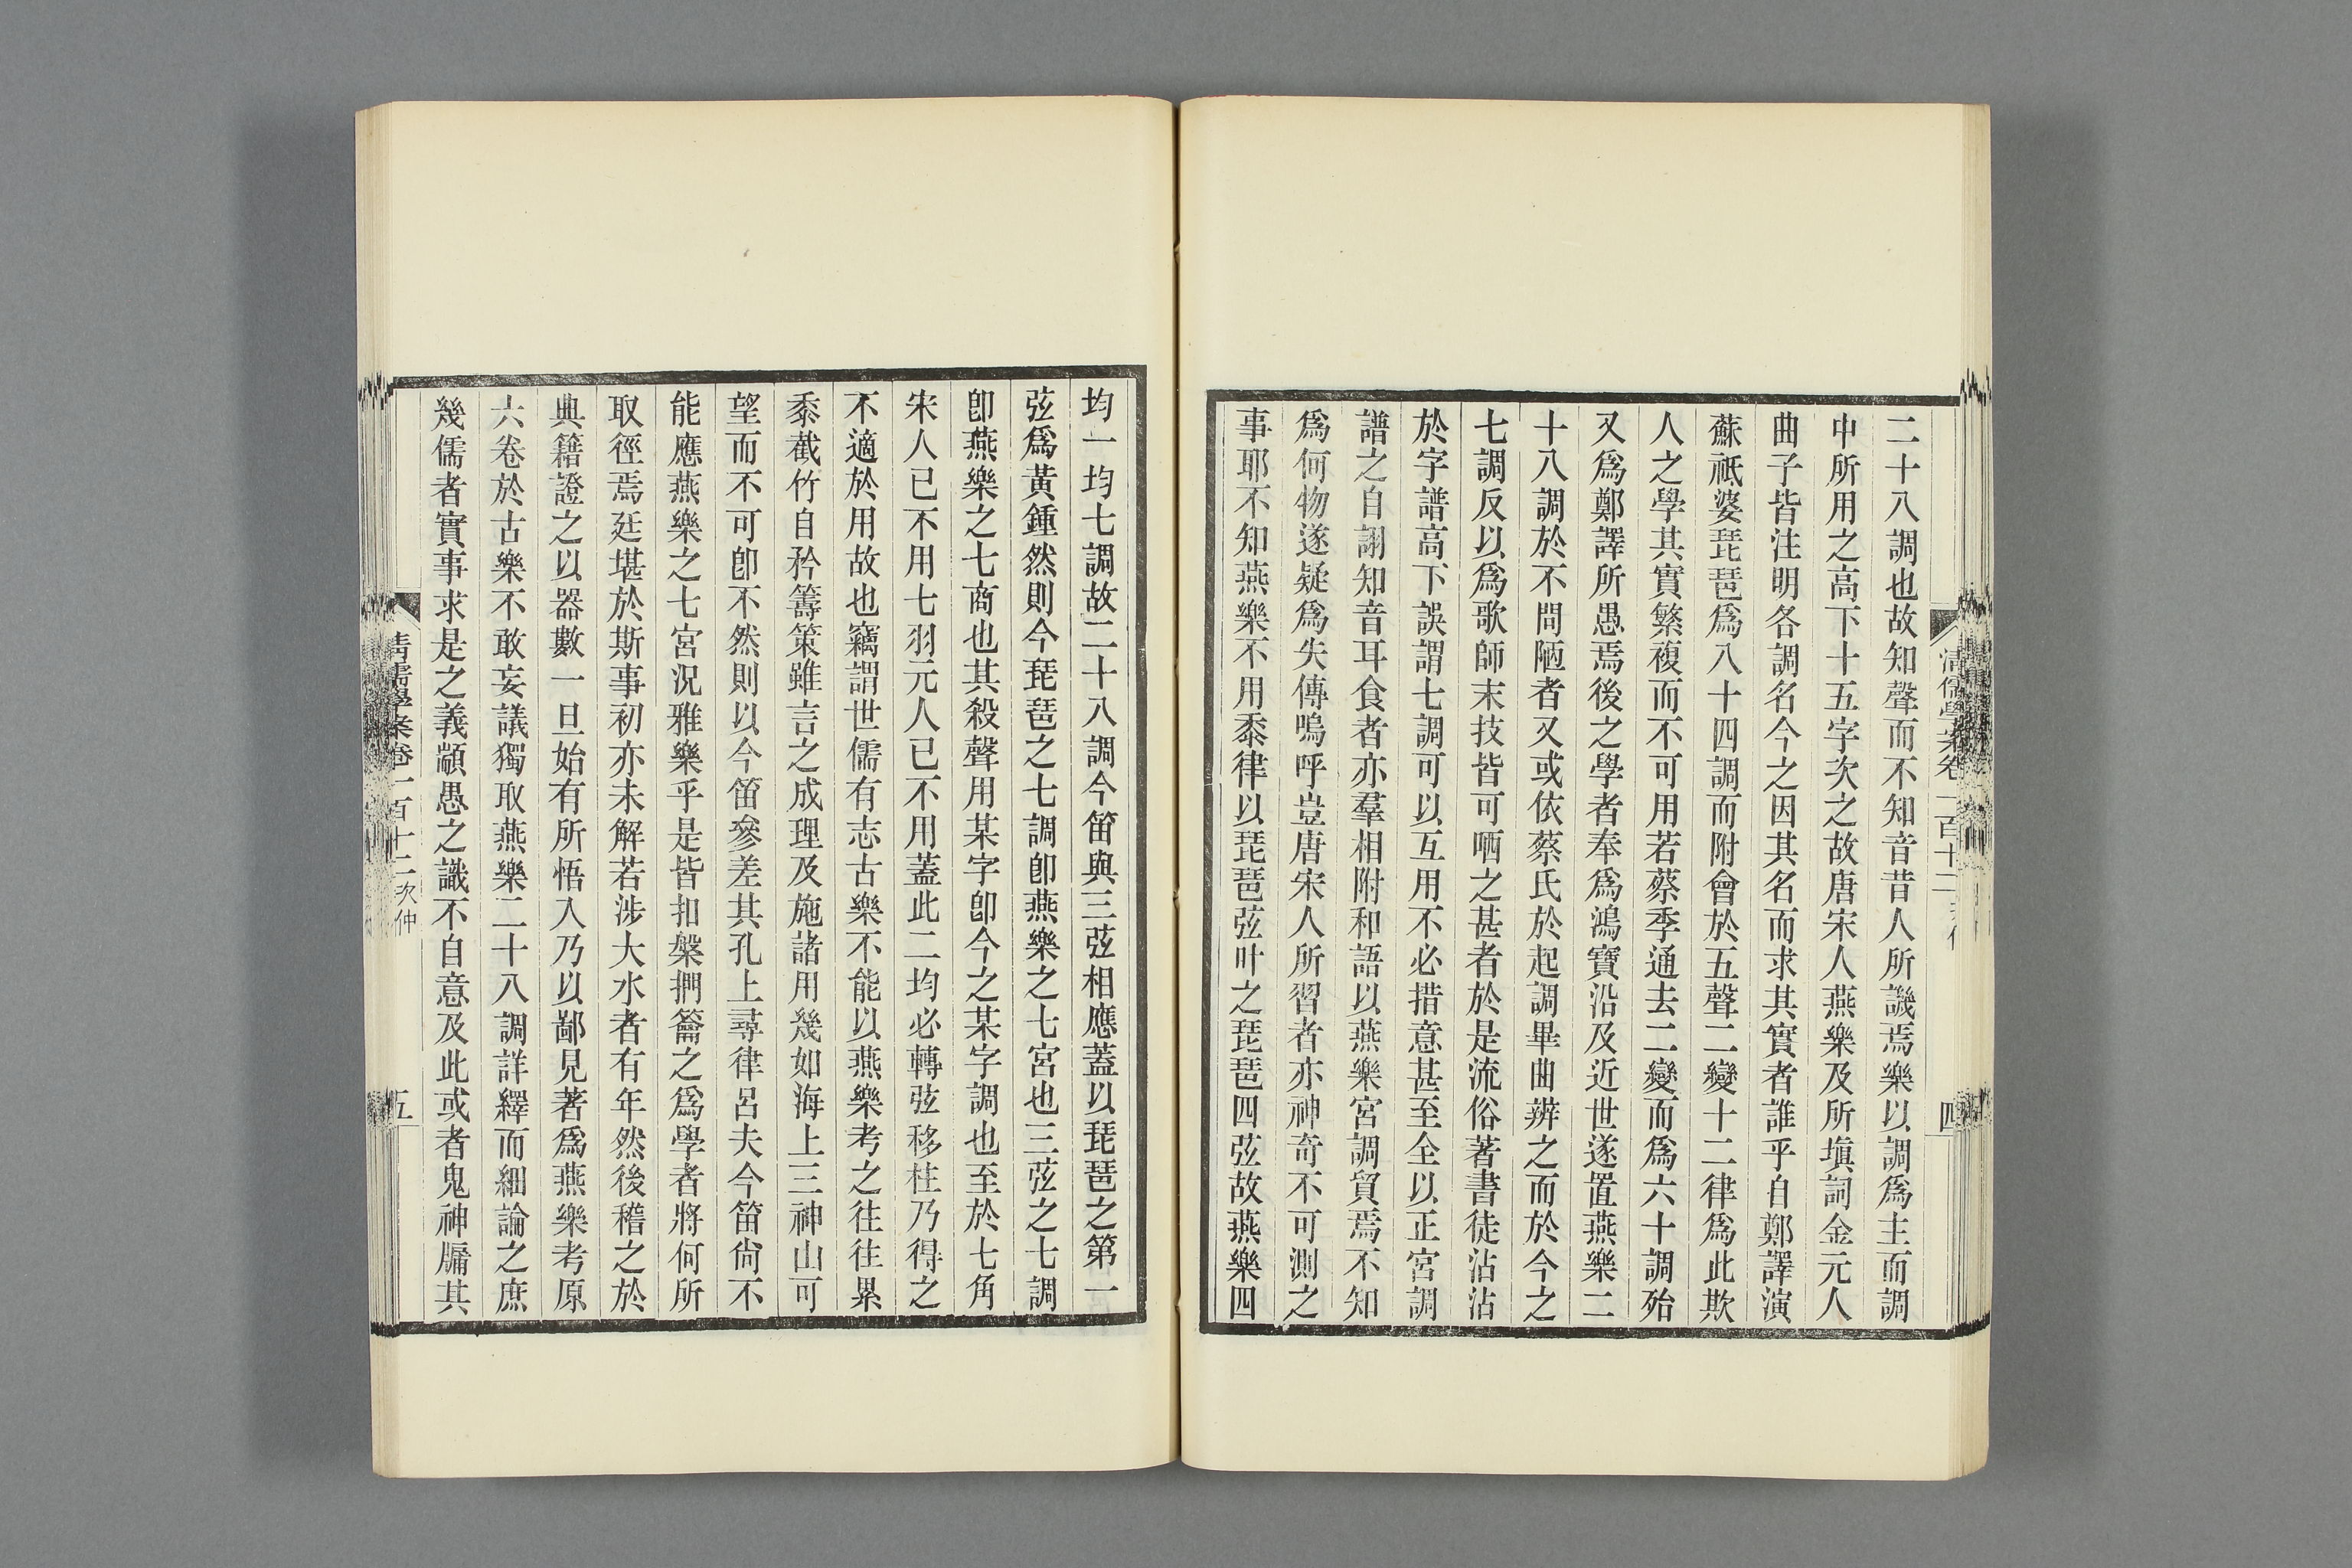 二十八調也故知聲而不知音昔人所譏焉樂以調爲主而調
中所用之高下十五字次之故唐宋人燕樂及所塡詞金元人
曲子皆注明各調名今之因其名而求其實者誰乎自鄭譯演
蘇祗婆琵琶爲八十四調而附會於五聲二變十二律爲此欺
人之學其實繁複而不可用若蔡季通去二變而爲六十調殆
又爲鄭譯所愚焉後之學者奉爲鴻寶沿及近世遂置燕樂二
十八調於不問陋者又或依蔡氏於起調畢曲辨之而於今之
七調反以爲歌師末技皆可哂之甚者於是流俗著書徒沾沾
於字譜高下誤謂七調可以互用不必措意甚至全以正宮調
譜之自詡知音耳食者亦羣相附和語以燕樂宮調貿焉不知
爲何物遂疑爲失傳嗚呼豈唐宋人所習者亦神奇不可測之
事耶不知燕樂不用黍律以琵琶弦叶之琵琶四弦故燕樂四
清儒學案卷一百十二
四
均一均七調故二十八調今笛與三弦相應蓋以琵琶之第一
弦爲黃鍾然則今琵琶之七調卽燕樂之七宮也三弦之七調
卽燕樂之七商也其殺聲用某字卽今之某字調也至於七角
宋人已不用七羽元人已不用蓋此二均必轉弦移柱乃得之
不適於用故也竊謂世儒有志古樂不能以燕樂考之往往累
黍截竹自矜籌策雖言之成理及施諸用幾如海上三神山可
望而不可卽不然則以今笛參差其孔上尋律呂夫今笛尙不
能應燕樂之七宮況雅樂乎是皆扣槃捫籥之爲學者將何所
取徑焉廷堪於斯事初亦未解若涉大水者有年然後稽之於
典籍證之以器數一旦始有所悟入乃以鄙見著爲燕樂考原
六卷於古樂不敢妄議獨取燕樂二十八調詳繹而細論之庶
幾儒者實事求是之義顓愚之識不自意及此或者鬼神牖其
清儒學案卷一百十二 次仲
五